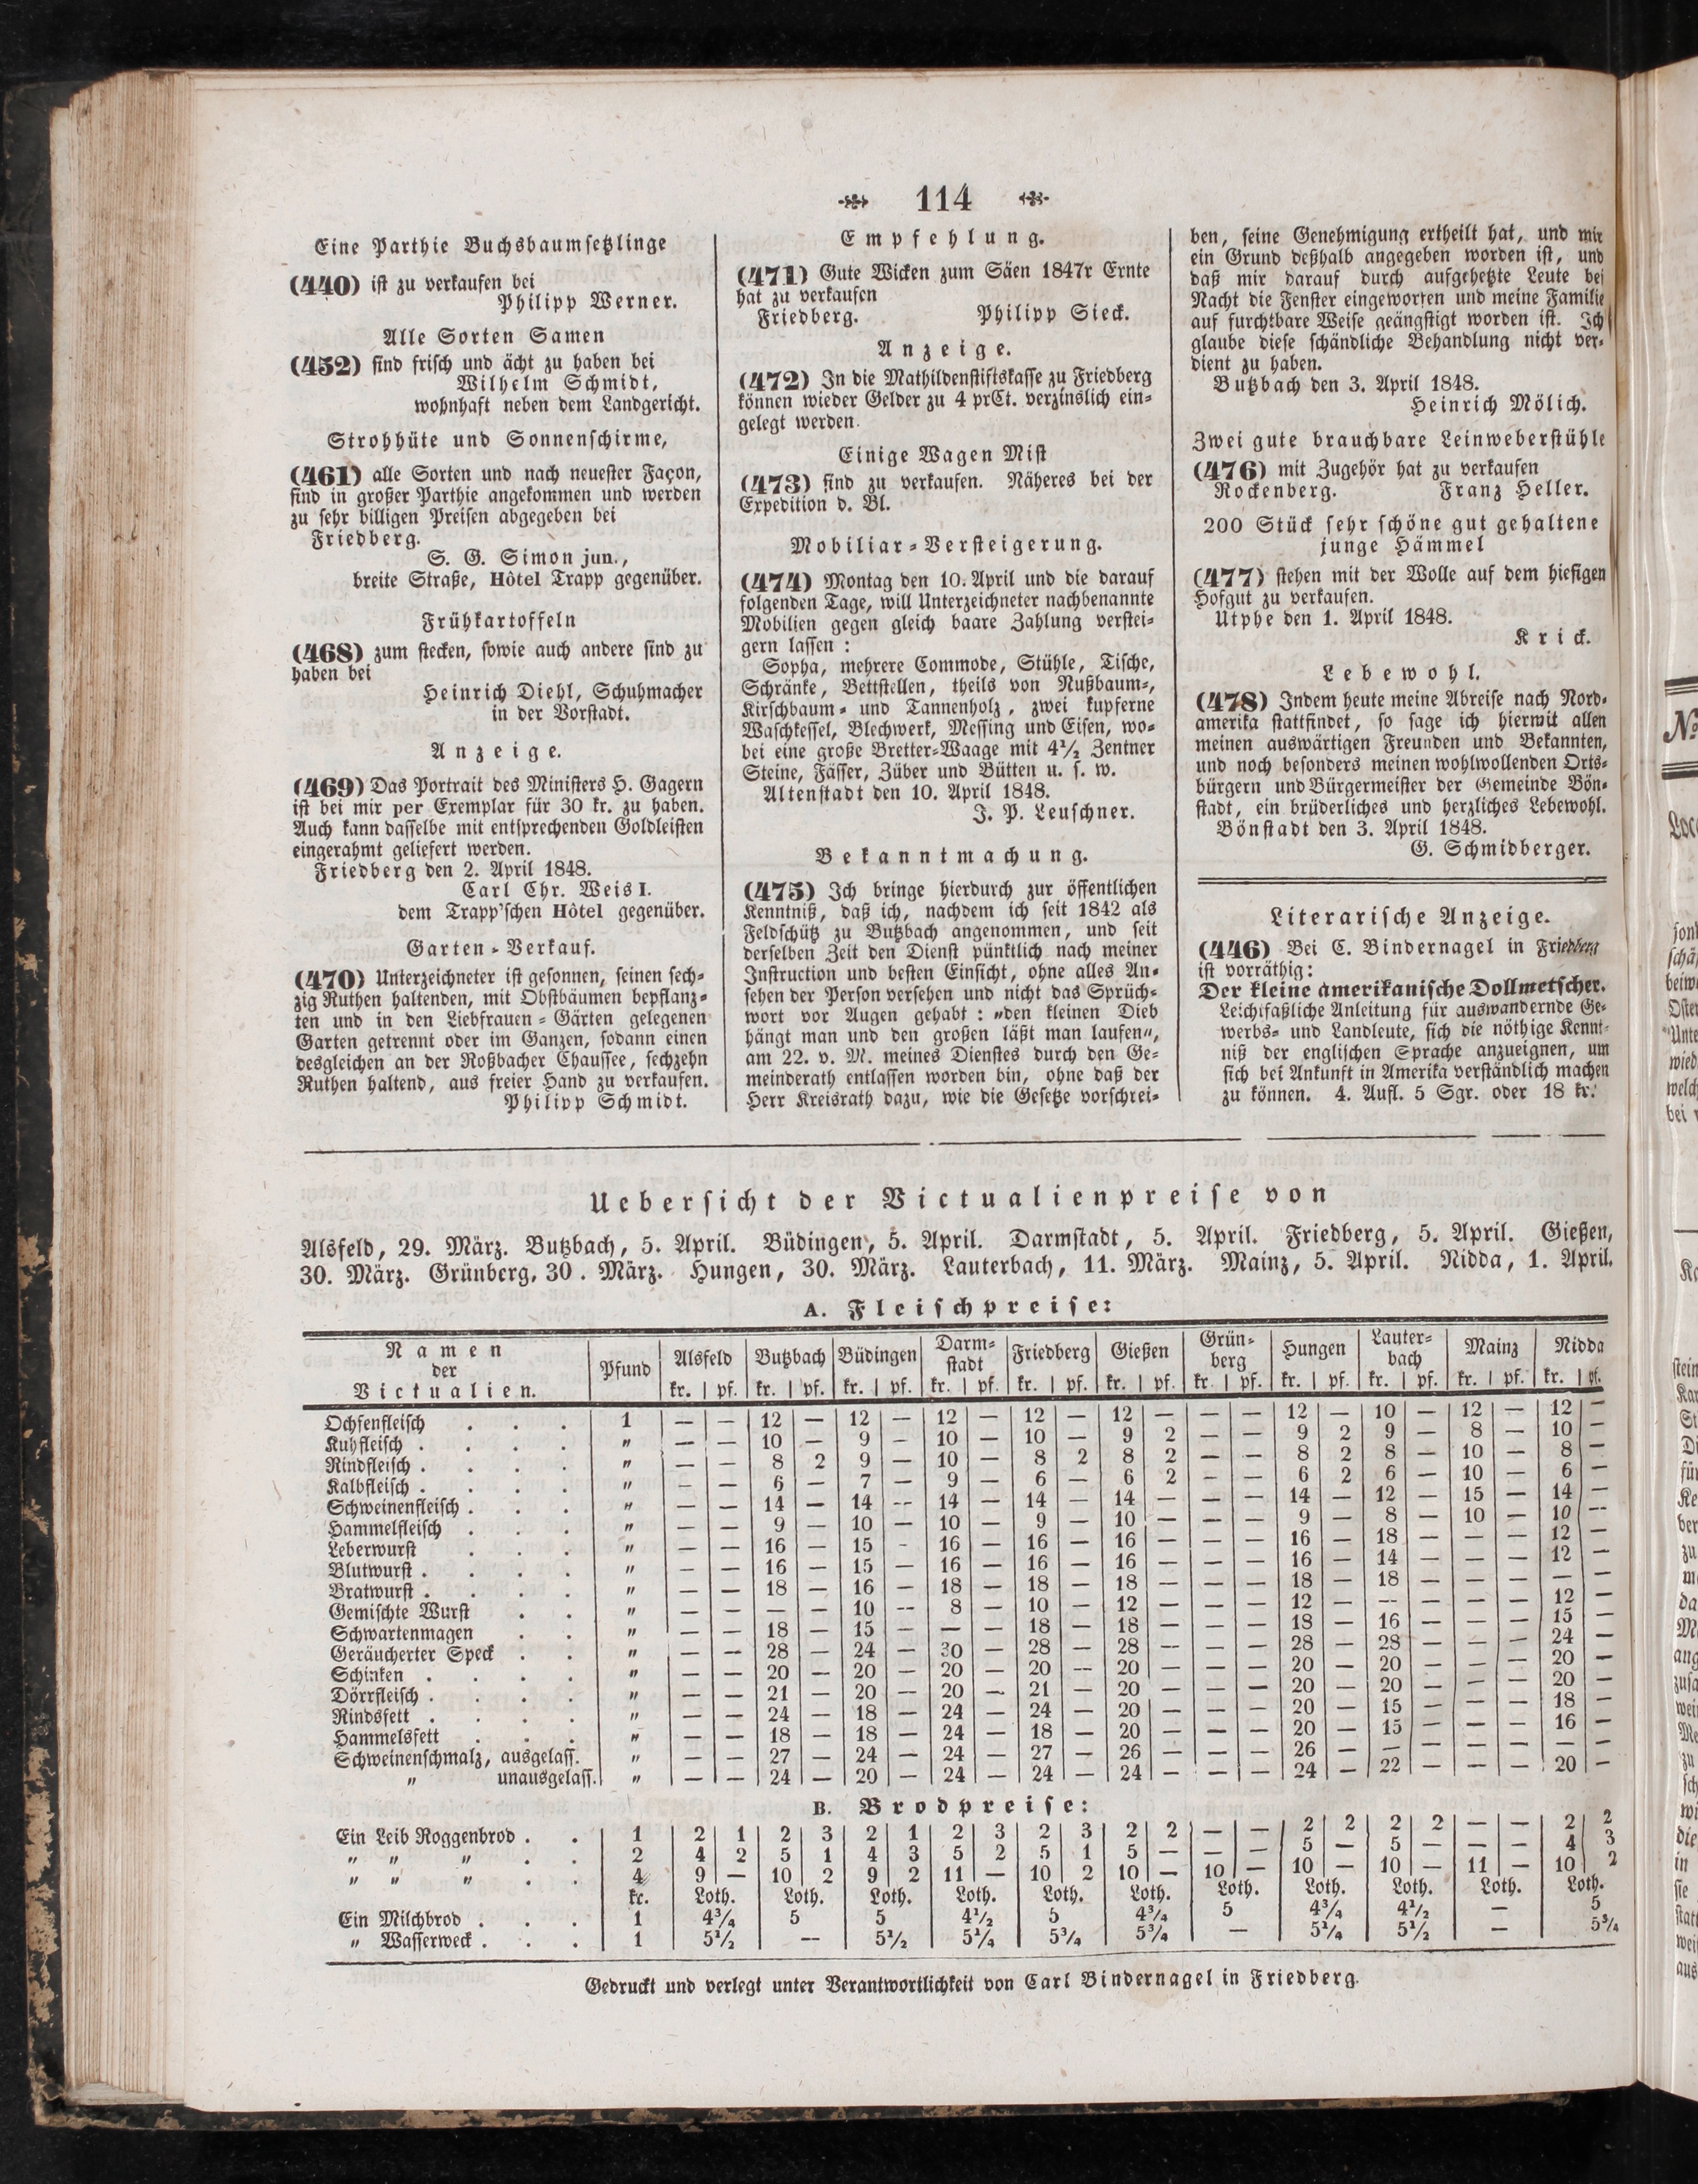 114
Eine Parthie Buchsbaumsetzlinge
(440) ist zu verkaufen bei
Philipp Werner.
Alle Sorten Samen
(452) sind frisch und ächt zu haben bei
Wilhelm Schmidt,
wohnhaft neben dem Landgericht.
Strohhüte und Sonnenschirme,
(461) alle Sorten und nach neuester Façon,
sind in großer Parthie angekommen und werden
zu sehr billigen Preisen abgegeben bei
Friedberg.
S. G. Simon jun.,
breite Straße, Hôtel Trapp gegenüber.
Frühkartoffeln
(468) zum stecken, sowie auch andere sind zu
haben bei
Heinrich Diehl, Schuhmacher
in der Vorstadt.
Anzeige.
(469) Das Portrait des Ministers H. Gagern
ist bei mir per Exemplar für 30 kr. zu haben.
Auch kann dasselbe mit entsprechenden Goldleisten
eingerahmt geliefert werden.
Friedberg den 2. April 1848.
Carl Chr. Weis I.
dem Trapp'schen Hôtel gegenüber.
Garten-Verkauf.
(470) Unterzeichneter ist gesonnen, seinen sech-
zig Ruthen haltenden, mit Obstbäumen bepflanz-
ten und in den Liebfrauen-Gärten gelegenen
Garten getrennt oder im Ganzen, sodann einen
desgleichen an der Roßbacher Chaussee, sechzehn
Ruthen haltend, aus freier Hand zu verkaufen.
Philipp Schmidt.
Empfehlung.
(471) Gute Wicken zum Säen 1847r Ernte
hat zu verkaufen
Friedberg. Philipp Sieck.
Anzeige.
(472) In die Mathildenstiftskasse zu Friedberg
können wieder Gelder zu 4 prCt. verzinslich ein-
gelegt werden.
Einige Wagen Mist
(473) sind zu verkaufen. Näheres bei der
Expedition d. Bl.
Mobiliar-Versteigerung.
(474) Montag den 10. April und die darauf
folgenden Tage, will Unterzeichneter nachbenannte
Mobilien gegen gleich baare Zahlung verstei-
gern lassen :
Sopha, mehrere Commode, Stühle, Tische,
Schränke, Bettstellen, theils von Nußbaum-,
Kirschbaum- und Tannenholz, zwei kupferne
Waschkessel, Blechwerk, Messing und Eisen, wo-
bei eine große Bretter-Waage mit 4½ Zentner
Steine, Fässer, Züber und Bütten u. s. w.
Altenstadt den 10. April 1848.
J. P. Leuschner.
Bekanntmachung.
(475) Ich bringe hierdurch zur öffentlichen
Kenntniß, daß ich, nachdem ich seit 1842 als
Feldschütz zu Butzbach angenommen, und seit
derselben Zeit den Dienst pünktlich nach meiner
Instruction und besten Einsicht, ohne alles An-
sehen der Person versehen und nicht das Sprüch-
wort vor Augen gehabt : „den kleinen Dieb
hängt man und den großen läßt man laufen“,
am 22. v. M. meines Dienstes durch den Ge-
meinderath entlassen worden bin, ohne daß der
Herr Kreisrath dazu, wie die Gesetze vorschrei-
ben, seine Genehmigung ertheilt hat, und mir
ein Grund deßhalb angegeben worden ist, und
daß mir darauf durch aufgehetzte Leute bei
Nacht die Fenster eingeworfen und meine Familie
auf furchtbare Weise geängstigt worden ist. Ich
glaube diese schändliche Behandlung nicht ver-
dient zu haben.
Butzbach den 3. April 1848.
Heinrich Mölich.
Zwei gute brauchbare Leinweberstühle
(476) mit Zugehör hat zu verkaufen
Rockenberg. Franz Heller.
200 Stück sehr schöne gut gehaltene
junge Hämmel
(477) stehen mit der Wolle auf dem hiesigen
Hofgut zu verkaufen.
Utphe den 1. April 1848.
Krick.
Lebewohl.
(478) Indem heute meine Abreise nach Nord-
amerika stattfindet, so sage ich hiermit allen
meinen auswärtigen Freunden und Bekannten,
und noch besonders meinen wohlwollenden Orts-
bürgern und Bürgermeister der Gemeinde Bön-
stadt, ein brüderliches und herzliches Lebewohl.
Bönstadt den 3. April 1848.
G. Schmidberger.
Literarische Anzeige.
(446) Bei C. Bindernagel in Friedberg
ist vorräthig:
Der kleine amerikanische Dollmetscher.
Leichtfaßliche Anleitung für auswandernde Ge-
werbs- und Landleute, sich die nöthige Kennt-
niß der englischen Sprache anzueignen, um
sich bei Ankunft in Amerika verständlich machen
zu können. 4. Aufl. 5 Sgr. oder 18 kr.
Uebersicht der Victualienpreise von
Alsfeld, 29. März. Butzbach, 5. April. Büdingen, 5. April. Darmstadt, 5. April. Friedberg, 5. April. Gießen,
30. März. Grünberg, 30. März. Hungen, 30. März. Lauterbach, 11. März. Mainz, 5. April. Nidda, 1. April.
A. Fleischpreise:
Namen der Victualien. | Pfund | Alsfeld | Butzbach | Büdingen | Darm-stadt | Friedberg | Gießen | Grün-berg | Hungen | Lauter-bach | Mainz | Nidda
kr. | pf. kr. | pf. kr. | pf. kr. | pf. kr. | pf. kr. | pf. kr. | pf. kr. | pf. kr. | pf. kr. | pf. kr. | pf.
Ochsenfleisch . . . 1 — — 12 — 12 — 12 — 12 — 12 — — — 12 — 10 — 12 — 12 —
Kuhfleisch . . . . „ — — 10 — 9 — 10 — 10 — 9 2 — — 9 2 9 — 8 — 10 —
Rindfleisch . . . . „ — — 8 2 9 — 10 — 8 2 8 2 — — 8 2 8 — 10 — 8 —
Kalbfleisch . . . . „ — — 6 — 7 — 9 — 6 — 6 2 — — 6 2 6 — 10 — 6 —
Schweinenfleisch . . . „ — — 14 — 14 — 14 — 14 — 14 — — — 14 — 12 — 15 — 14 —
Hammelfleisch . . . „ — — 9 — 10 — 10 — 9 — 10 — — — 9 — 8 — 10 — 10 —
Leberwurst . . . „ — — 16 — 15 — 16 — 16 — 16 — — — 16 — 18 — — — 12 —
Blutwurst . . . . „ — — 16 — 15 — 16 — 16 — 16 — — — 16 — 14 — — — 12 —
Bratwurst . . . . „ — — 18 — 16 — 18 — 18 — 18 — — — 18 — 18 — — — — —
Gemischte Wurst . . „ — — — — 10 — 8 — 10 — 12 — — — 12 — — — — — 12 —
Schwartenmagen . . „ — — 18 — 15 — — — 18 — 18 — — — 18 — 16 — — — 15 —
Geräucherter Speck . . „ — — 28 — 24 — 30 — 28 — 28 — — — 28 — 28 — — — 24 —
Schinken . . . . „ — — 20 — 20 — 20 — 20 — 20 — — — 20 — 20 — — — 20 —
Dörrfleisch . . . . „ — — 21 — 20 — 20 — 21 — 20 — — — 20 — 20 — — — 20 —
Rindsfett . . . . „ — — 24 — 18 — 24 — 24 — 20 — — — 20 — 15 — — — 18 —
Hammelsfett . . . „ — — 18 — 18 — 24 — 18 — 20 — — — 20 — 15 — — — 16 —
Schweinenschmalz, ausgelass. „ — — 27 — 24 — 24 — 27 — 26 — — — 26 — — — — — — —
„ unausgelass. „ — — 24 — 20 — 24 — 24 — 24 — — — 24 — 22 — — — 20 —
B. Brodpreise:
Ein Leib Roggenbrod . . 1 2 1 2 3 2 1 2 3 2 3 2 2 — — 2 2 2 2 — — 2 2
„ „ „ . . 2 4 2 5 1 4 3 5 2 5 1 5 — — — 5 — 5 — — — 4 3
„ „ „ . . 4 9 — 10 2 9 2 11 — 10 2 10 — 10 — 10 — 10 — 11 — 10 2
kr. Loth. Loth. Loth. Loth. Loth. Loth. Loth. Loth. Loth. Loth. Loth.
Ein Milchbrod . . . 1 4¾ 5 5 4½ 5 4¾ 5 4¾ 4½ — 5
„ Wasserweck . . . 1 5½ — 5½ 5¼ 5¾ 5¾ — 5¼ 5½ — 5¾
Gedruckt und verlegt unter Verantwortlichkeit von Carl Bindernagel in Friedberg.